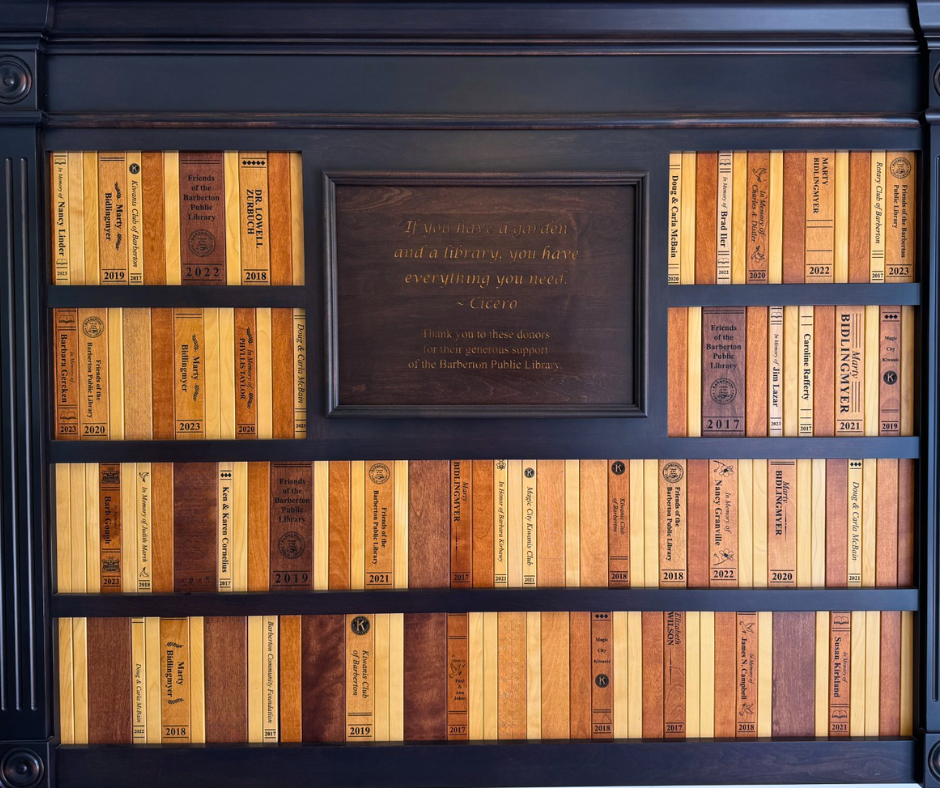 In Memory of Nancy Linder
2023
Marty
Bidlingmyer
2019
Kiwanis Club of Barberton
2017
Friends
of the
Barberton
Public
Library
2022
DR. LOWELL
ZURBUCH
2018
If you have a garden
and a library, you have
everything you need.
~ Cicero
Thank you to these donors
for their generous support
of the Barberton Public Library.
Doug & Carla McBain
2020
In Memory of
Brad Iler
2022
In Memory of
Charles A.
2020
MARTY
BIDLINGMYER
2022
Rotary Club of Barberton
2017
Friends of the Barberton
Public Library
2023
In Memory of
Barbara Gercken
2023
Friends of the
Barberton Public Library
2020
Marty
Bidlingmyer
2023
In Memory of
PHYLLIS TAYLOR
2020
Doug & Carla McBain
2021
Friends
of the
Barberton
Public
Library
2017
In Memory of Jim Lazar
2023
Caroline Rafferty
2017
Marty
BIDLINGMYER
2021
Magic
City
Kiwanis
2019
Barb Gough
2023
In Memory of Judith March
2018
Ken & Karen Cornelius
2017
Friends
of the
Barberton
Public
Library
2019
Friends of the
Barberton Public Library
2021
Marty
BIDLINGMYER
2017
In Honor of Barbara
2022
Magic City Kiwanis Club
2021
Kiwanis Club
of Barberton
2018
Friends of the
Barberton Public Library
2018
In Memory of
Nancy Granville
2022
Marty
BIDLINGMYER
2020
Doug & Carla McBain
2021
Doug & Carla McBain
2022
Marty
Bidlingmyer
2018
Barberton Community Foundation
2017
Kiwanis Club
of Barberton
2019
Magic
City
Kiwanis
2018
Elizabeth
WILSON
2017
In Memory of
James N. Campbell
2018
In Memory of
Susan Kirkland
2021